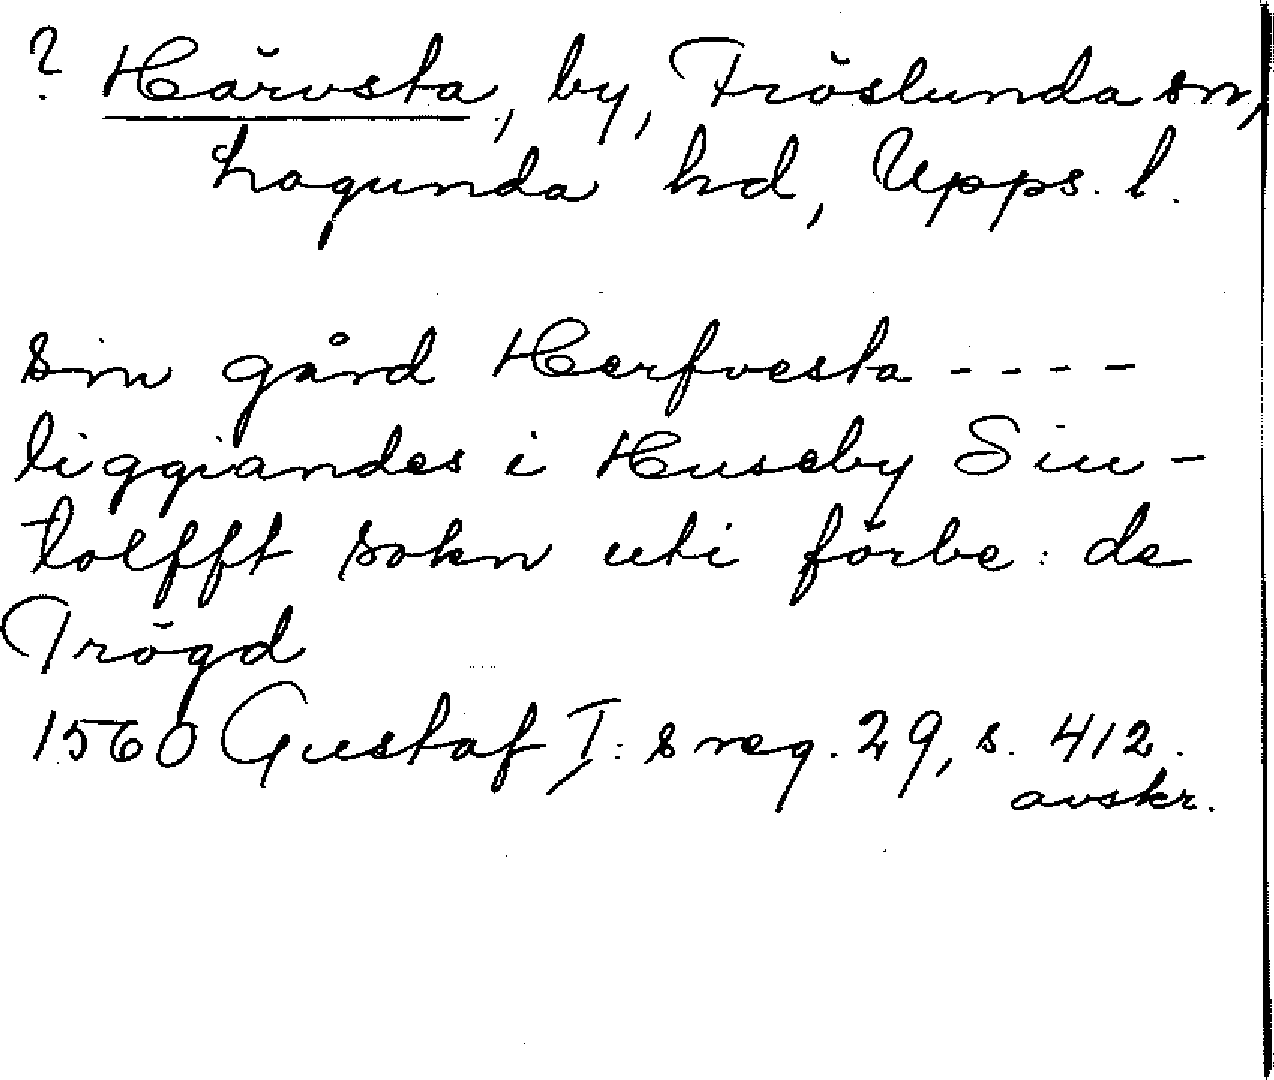 ? Härvsta, by, Fröslunda sn,
Lagunda hd, Upps. l.
sin gård Herfvesta ----
liggiandes i Huseby Siu-
tolfft sokn uti förbe: de
Trögd
1560 Gustaf I: s reg. 29, s. 412.
avskr.